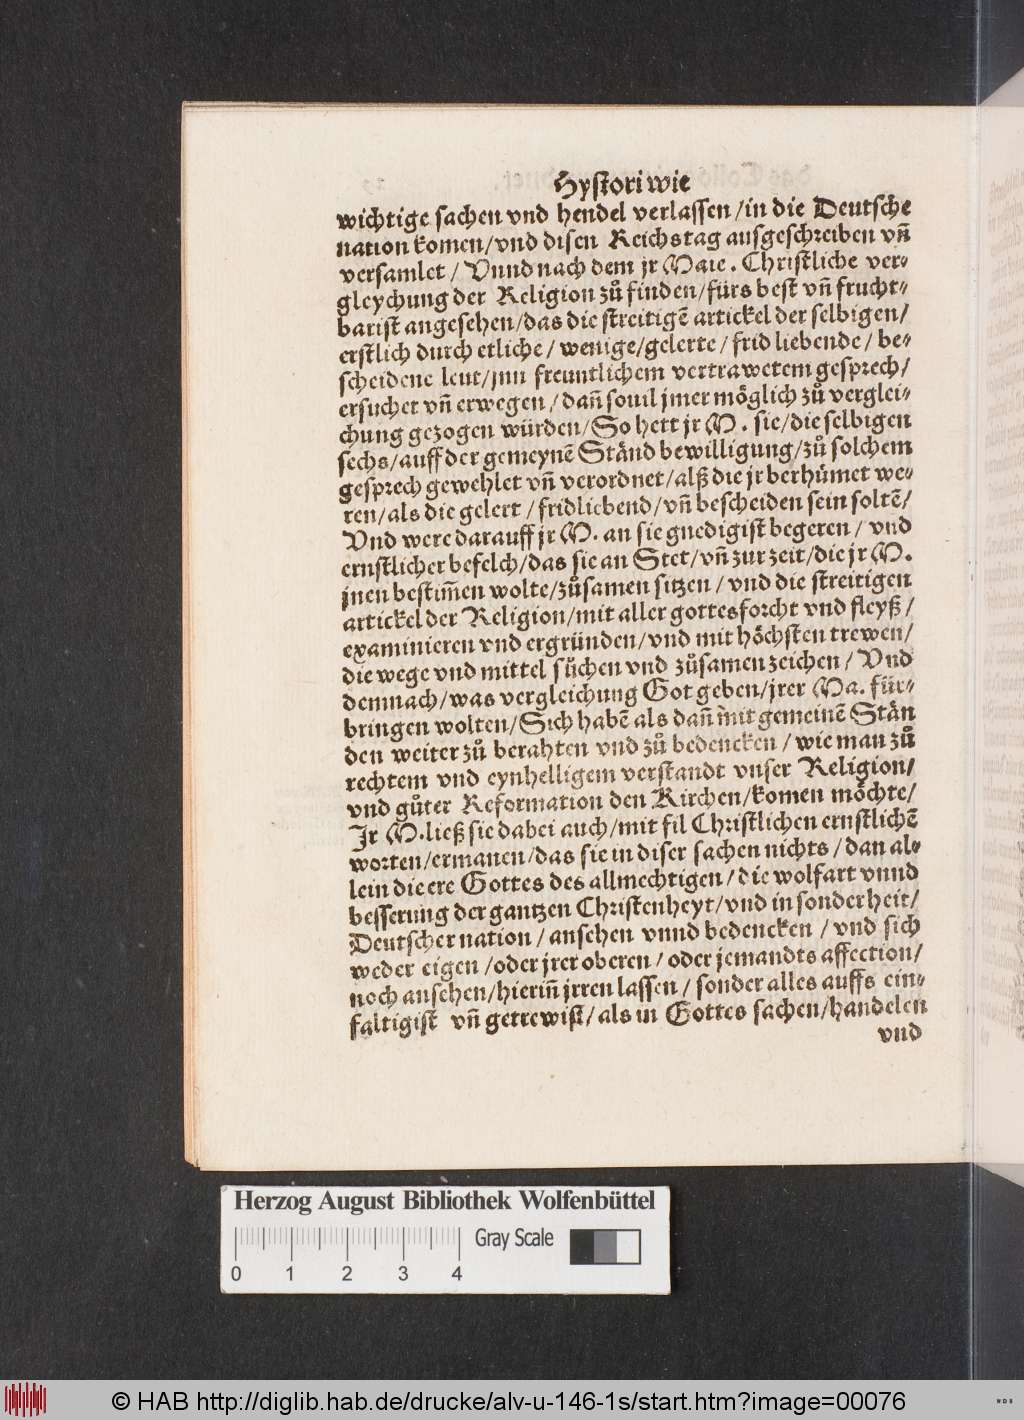 Hystori wie
wichtige sachen vnd hendel verlassen / in die Deutsche
nation komen / vnd disen Reichstag ausgeschreiben vñ
versamlet / Vnnd nach dem jr Maie. Christliche ver-
gleychung der Religion zů finden / fürs best vñ frucht-
barist angesehen / das die streitigẽ artickel der selbigen /
erstlich durch etliche / wenige / gelerte / frid liebende / be-
scheidene leut / jnn freuntlichem vertrawetem gesprech /
ersuchet vñ erwegen / dañ souil jmer möglich zů verglei-
chung gezogen würden / So hett jr M. sie / die selbigen
sechs / auff der gemeynẽ Ständ bewilligung / zů solchem
gesprech gewehlet vñ verordnet / alß die jr berhümet we-
ren / als die gelert / fridliebend / vñ bescheiden sein soltẽ /
Vnd were darauff jr M. an sie gnedigist begeren / vnd
ernstlicher befelch / das sie an Stet / vñ zur zeit / die jr M.
jnen bestim̃en wolte / zůsamen sitzen / vnd die streitigen
artickel der Religion / mit aller gottesforcht vnd fleyß /
examinieren vnd ergründen / vnd mit höchsten trewen /
die wege vnd mittel sůchen vnd zůsamen zeichen / Vnd
demnach / was vergleichung Got geben / jrer Ma. für-
bringen wolten / Sich habẽ als dañ mit gemeinẽ Stän
den weiter zů berahten vnd zů bedencken / wie man zů
rechtem vnd eynhelligem verstandt vnser Religion /
vnd gůter Reformation den Kirchen / komen möchte /
Jr M. ließ sie dabei auch / mit fil Christlichen ernstlichẽ
worten / ermanen / das sie in diser sachen nichts / dan al-
lein die ere Gottes des allmechtigen / die wolfart vnnd
besserung der gantzen Christenheyt / vnd in sonderheit /
Deutscher nation / ansehen vnnd bedencken / vnd sich
weder eigen / oder jrer oberen / oder jemandts affection /
noch ansehen / hieriñ jrren lassen / sonder alles auffs ein-
faltigist vñ getrewist / als in Gottes sachen / handelen
vnd
Herzog August Bibliothek Wolfenbüttel
Gray Scale
0 1 2 3 4
© HAB http://diglib.hab.de/drucke/alv-u-146-1s/start.htm?image=00076